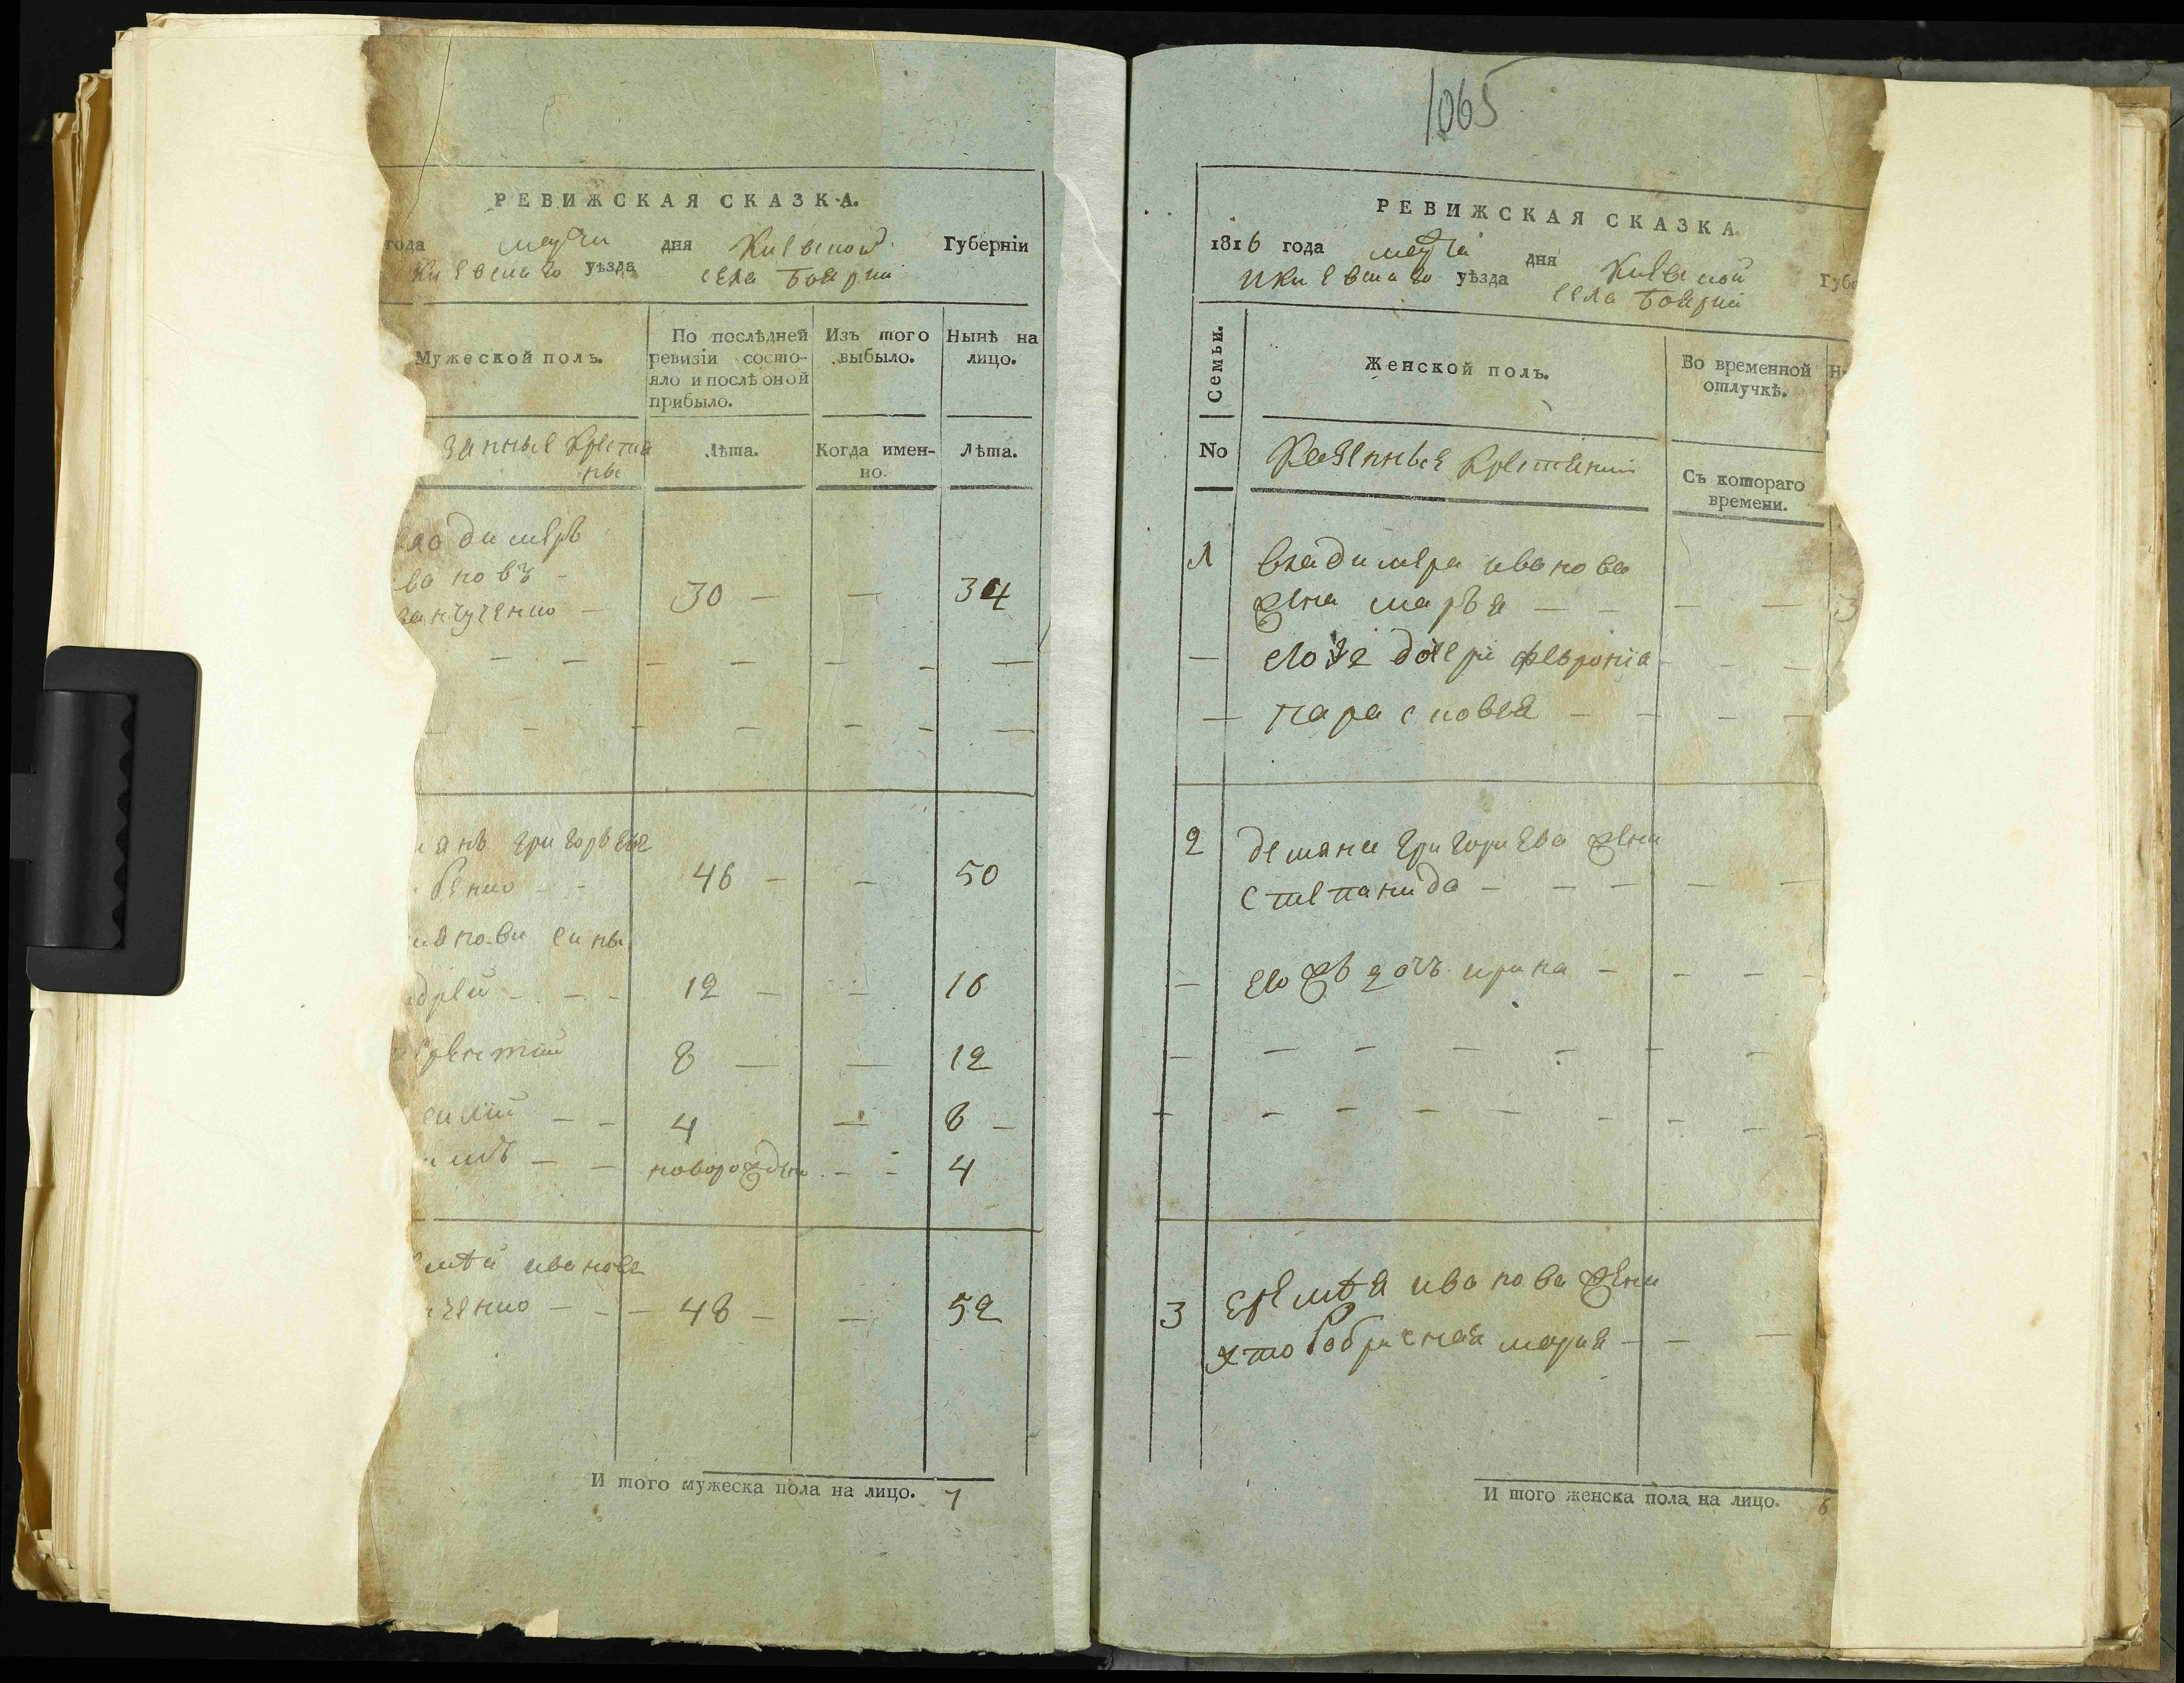 РЕВИЖСКАЯ СКАЗКА.
года марта дня Киевской Губерніи
Киевскаго уѣзда села Боярки
Мужеской полъ.
По послѣдней ревизіи состо-
яло и послѣ оной
прибыло.
Изъ того
выбыло.
Нынѣ на
лицо.
занные крестья
не
Лѣта.
Когда имен-
но.
Лѣта.
ладимеръ
вановъ -
30 — — 34
анъ григорьевъ
бенко - - 46 — — 50
янови сины
дрей - - - 12 — — 16
ерентий 8 — — 12
силий — — 4 — 8 —
имъ — — новорожден - - 4
емѣй ивановъ
ченко - - - 48 — — 52
И того мужеска пола на лицо. 7
1065
РЕВИЖСКАЯ СКАЗКА.
1816 года марта дня Киевской Губе
Киевскаго уѣзда села Боярки
Семьи.
Женской полъ.
Во временной
отлучкѣ.
Н
No
Казенные крестьянки
Съ котораго
времени.
1 владимера иванова
жена марья — —
— его же дочери феврония
— парасковья —
2 демяна григориева жена
степанида — — —
— его жъ дочь ирина —
3 еремѣя иванова жена
второбрачная мария —
И того женска пола на лицо. 6